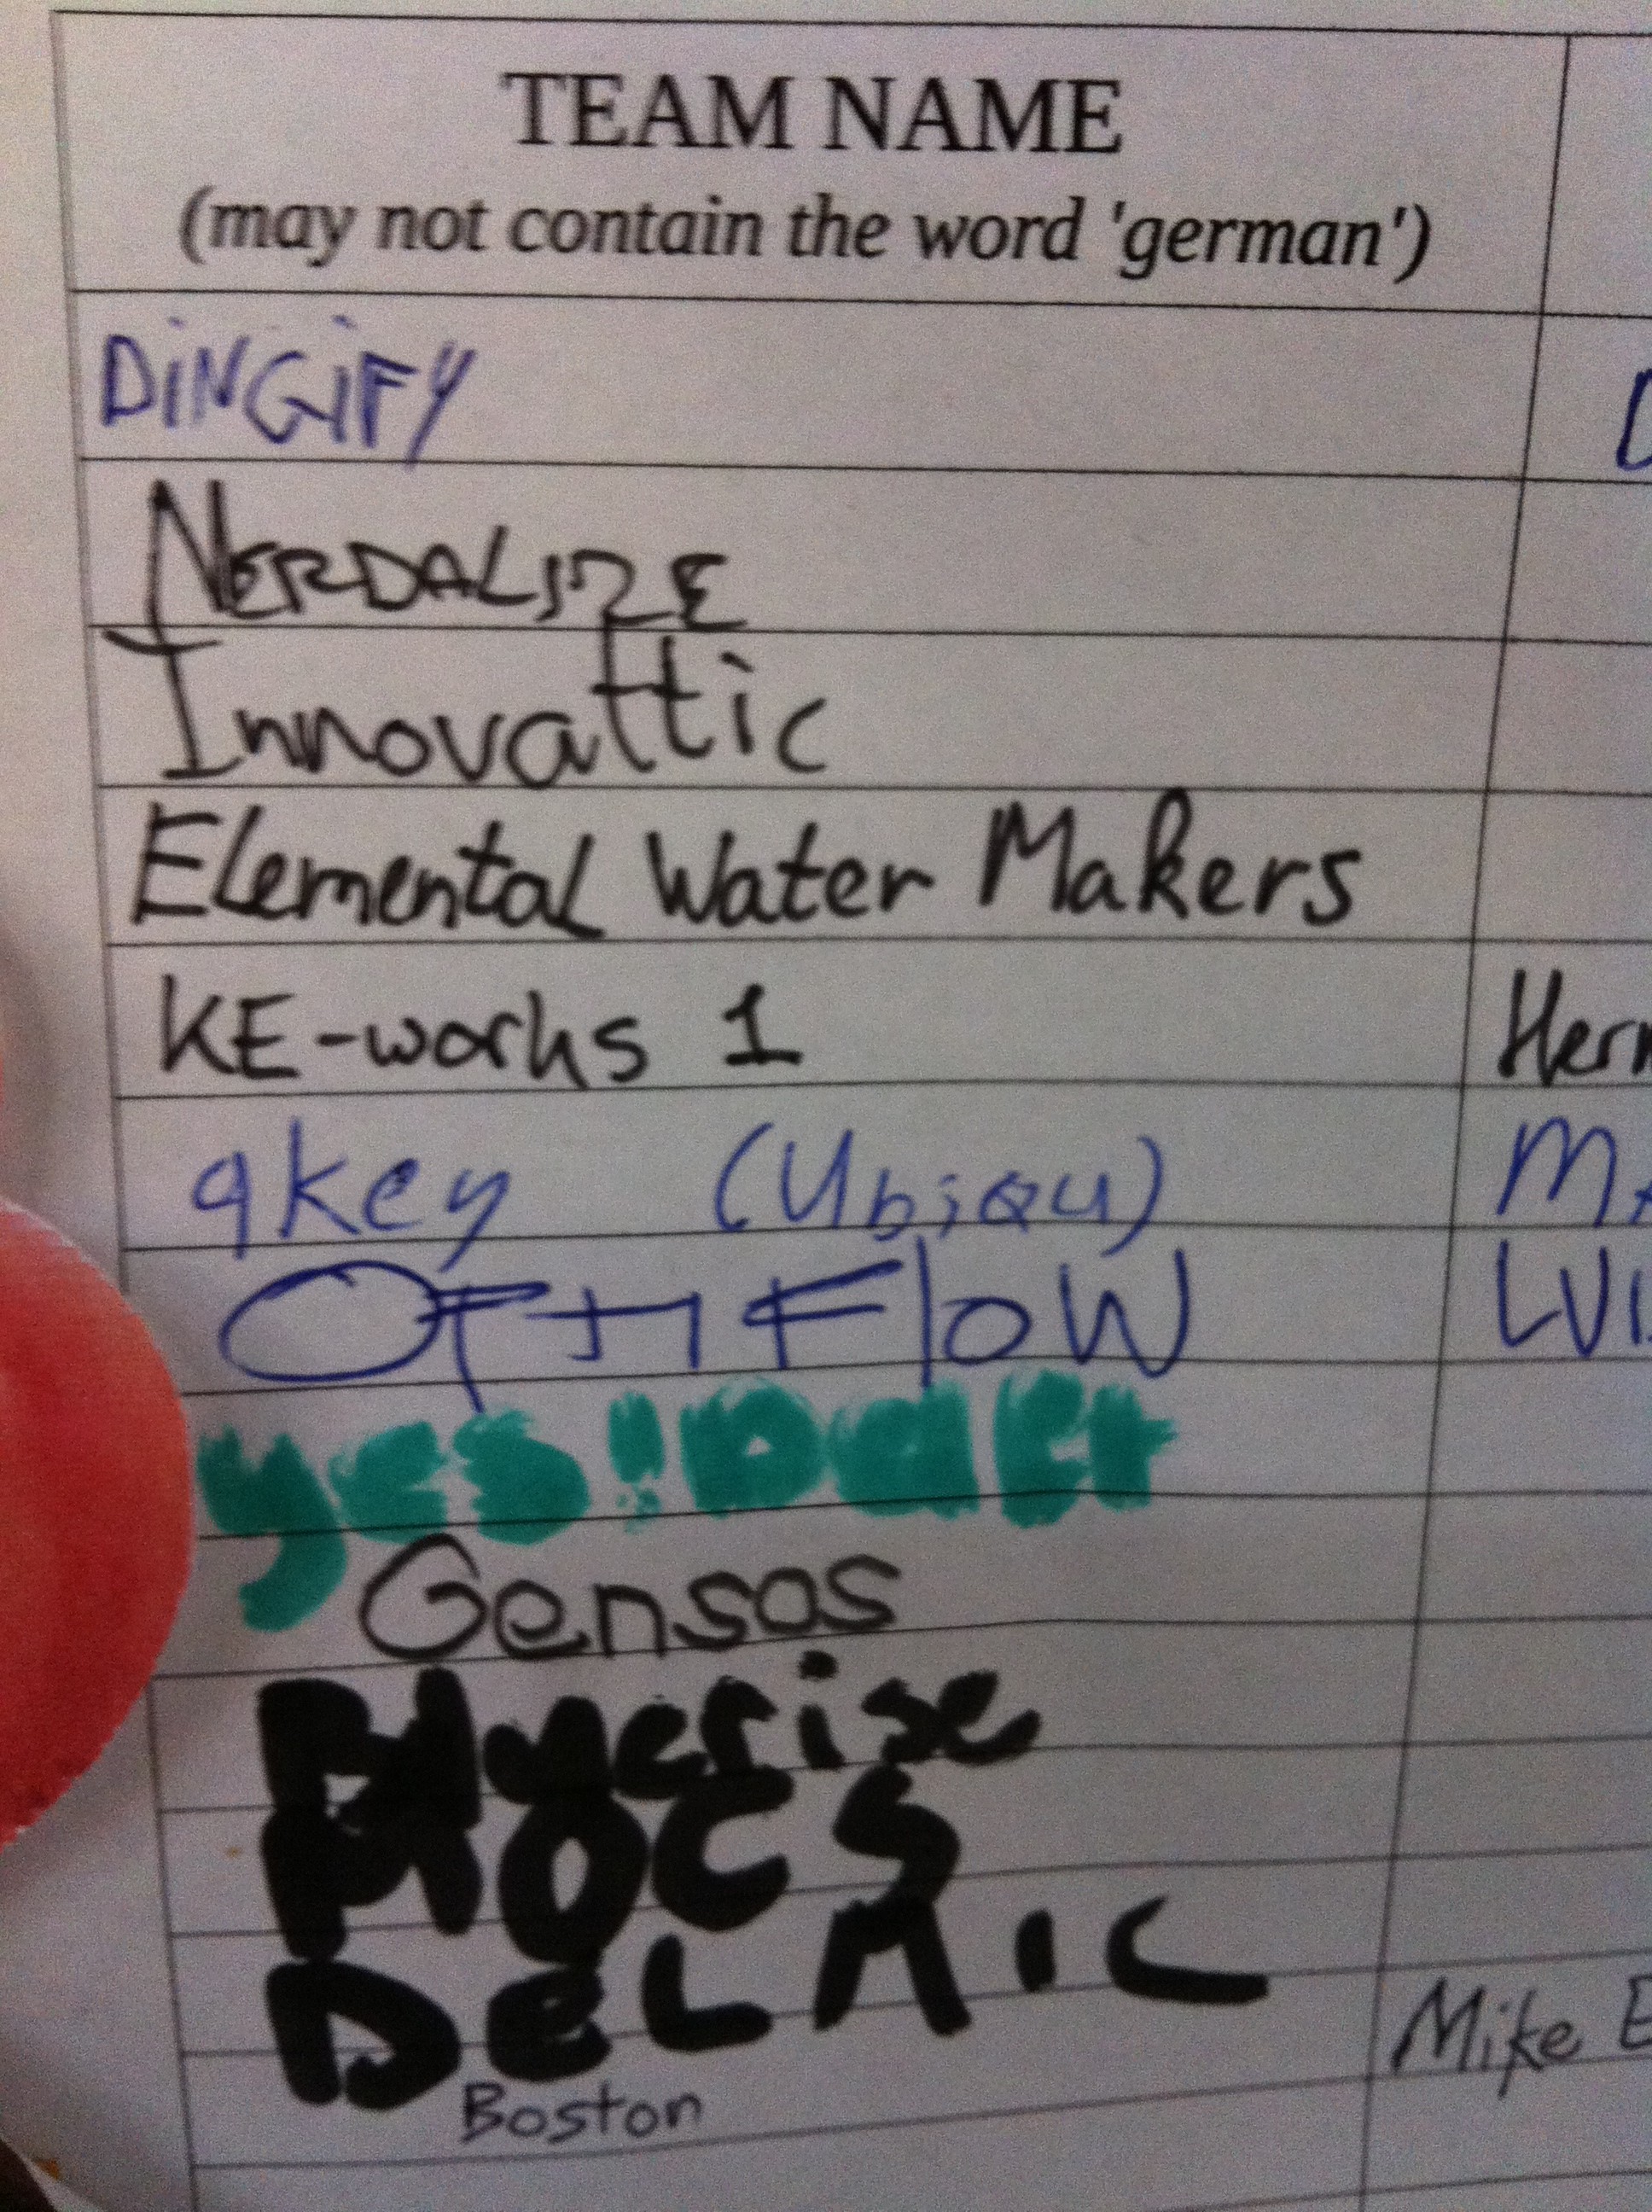 TEAM NAME
(may not contain the word 'german')
DiNGiFY
NERDALIZE
Innovattic
Elemental Water Makers
KE-works 1 Her
qkey (Ubiqu) MA
OPTI FloW LVI
yes!Delft
Gensos
Bluerise
MOCS
DeLMIC
Mike E
Boston